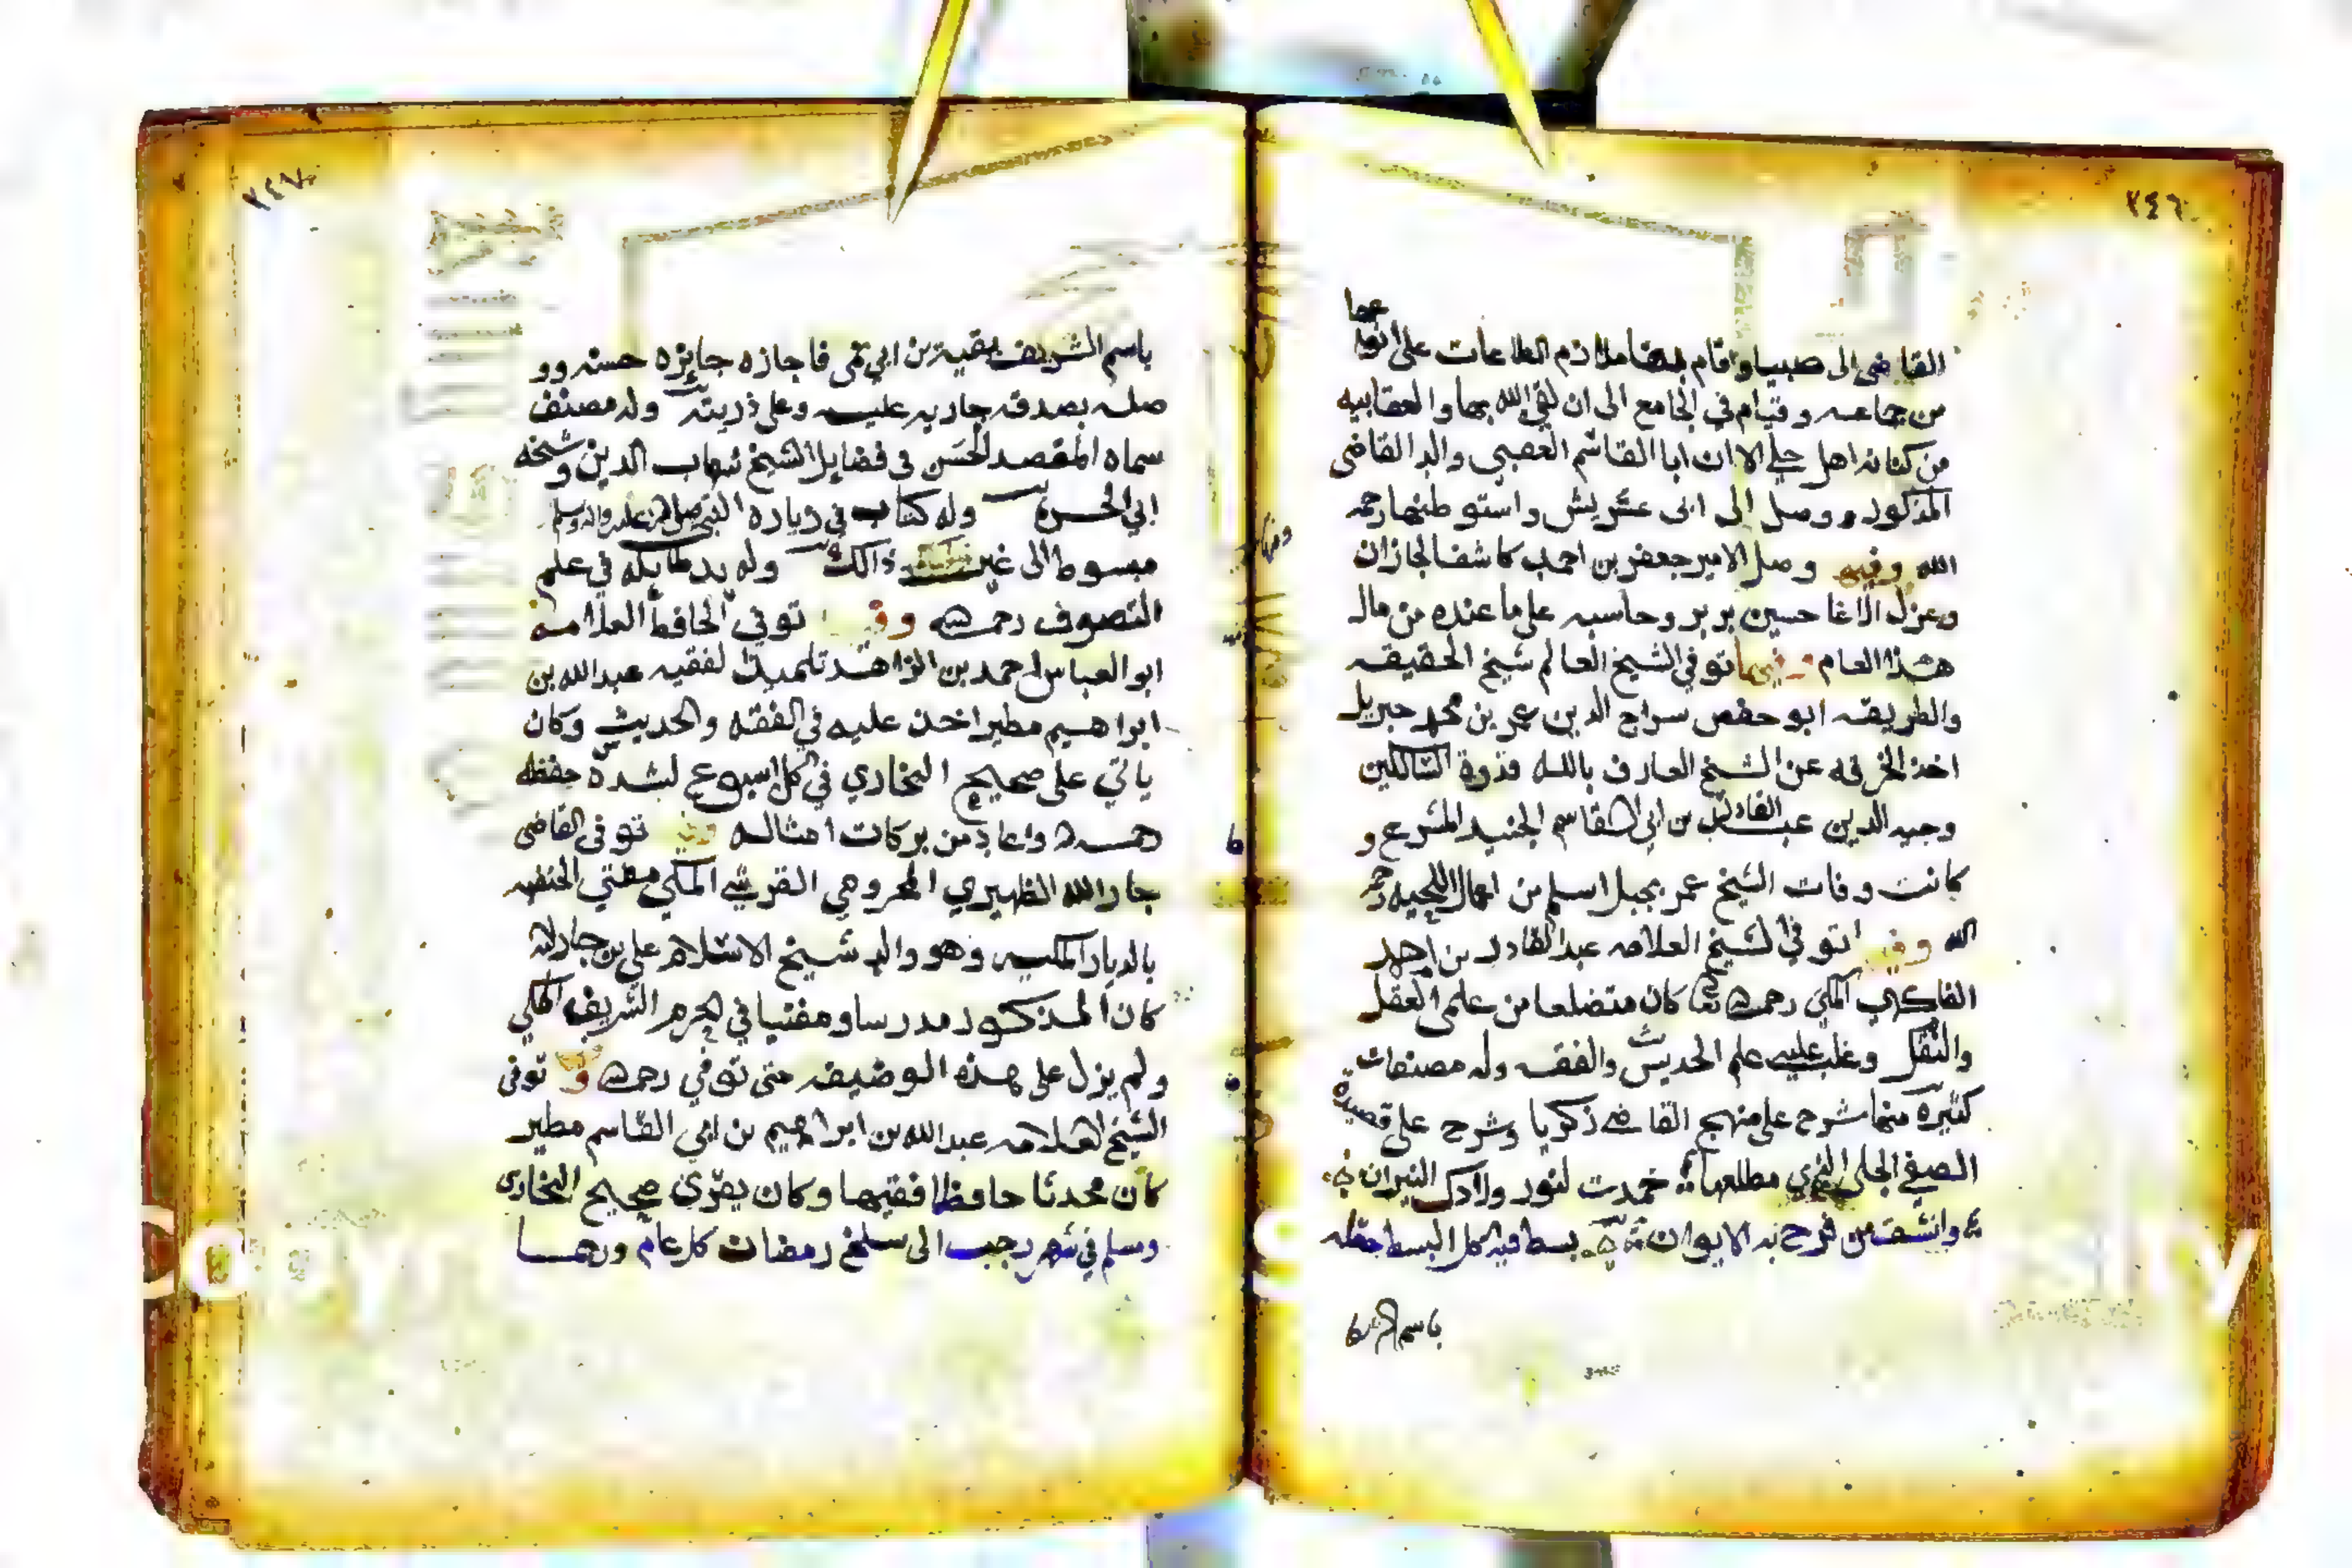 ٢٤٦
القاضي الى صبيا واقام بها ملازم الطاعات على انواعها
من جماعه وقيام في الجامع الى ان لقي الله بها والعقابيه
من كنانه اهل حلي الا ان ابا القاسم العصبي والد القاضي
المذكور وصل الى ابى عريش واستوطنها رحمه
الله وفيها وصل الامير جعفر بن احمد كاشفا لجازان
وعزل الاغا حسين بربر وحاسبه على ما عنده من مال
هذا العام وفيها توفي الشيخ العالم شيخ الحقيقه
والطريقه ابو حفص سراج الدين عمر بن محمد جبريل
اخذ الخرقه عن الشيخ العارف بالله قدوة السالكين
وجيه الدين عبد القادر بن ابي القاسم الجنيد المشرع و
كانت وفات الشيخ عمر بجبل اسلم من اعمال اللحيه رحمه
الله وفيها توفي الشيخ العلامه عبد القادر بن احمد
الفاكهي المكي رحمه الله كان متضلعا من علمي العقل
والنقل وغلب عليه علم الحديث والفقه وله مصنفات
كثيرة منها شرح على منهج القاضي زكريا وشرح على قصيدة
الصفي الحلي التي مطلعها خمدت لنور ولادك النيران
وانشق من فرح به الايوان بسط فيه كل البسط جعله
باسم الشريف
٢٤٧
باسم الشريف بقية بن ابي نمى فاجازه جايزه حسنه وو
صله بصدقه جاريه عليه وعلى ذريته وله مصنف
سماه المقصد الحسن في فضايل الشيخ شهاب الدين وشيخه
ابي الحسن وله كتاب في زيارة النبي صلى الله عليه واله وسلم
مبسوط الى غير ذالك وله يد طايله في علم
التصوف رحمه الله وفيها توفي الحافظ العلامه
ابو العباس احمد بن الزاهد تلميذ الفقيه عبد الله بن
ابراهيم مطير اخذ عليه في الفقه والحديث وكان
ياتي على صحيح البخاري في كل اسبوع لشدة حفظه
رحمه الله واعاد من بركات امثاله وفيها توفى القاضى
جار الله الظهيري المخزومي القرشي المكي مفتي الحنفيه
بالديار المكيه وهو والد شيخ الاسلام علي بن جار الله
كان المذكور مدرسا ومفتيا في الحرم الشريف المكي
ولم يزل على هذه الوضيفه حتى توفي رحمه الله وفيها توفى
الشيخ العلامه عبد الله بن ابراهيم بن ابي القاسم مطير
كان محدثا حافظا فقيها وكان يقرى صحيح البخارى
وسلم في شهر رجب الى سلخ رمضان كل عام وربما